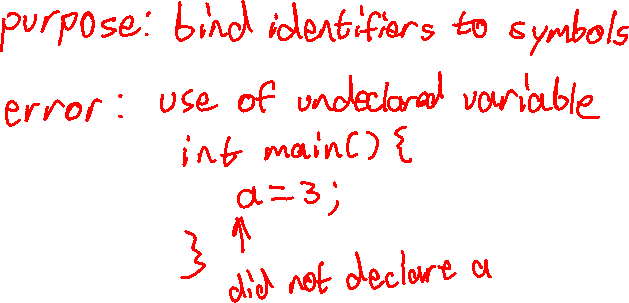 purpose: bind identifiers to symbols
error: use of undeclared variable
int main() {
a = 3;
}
did not declare a